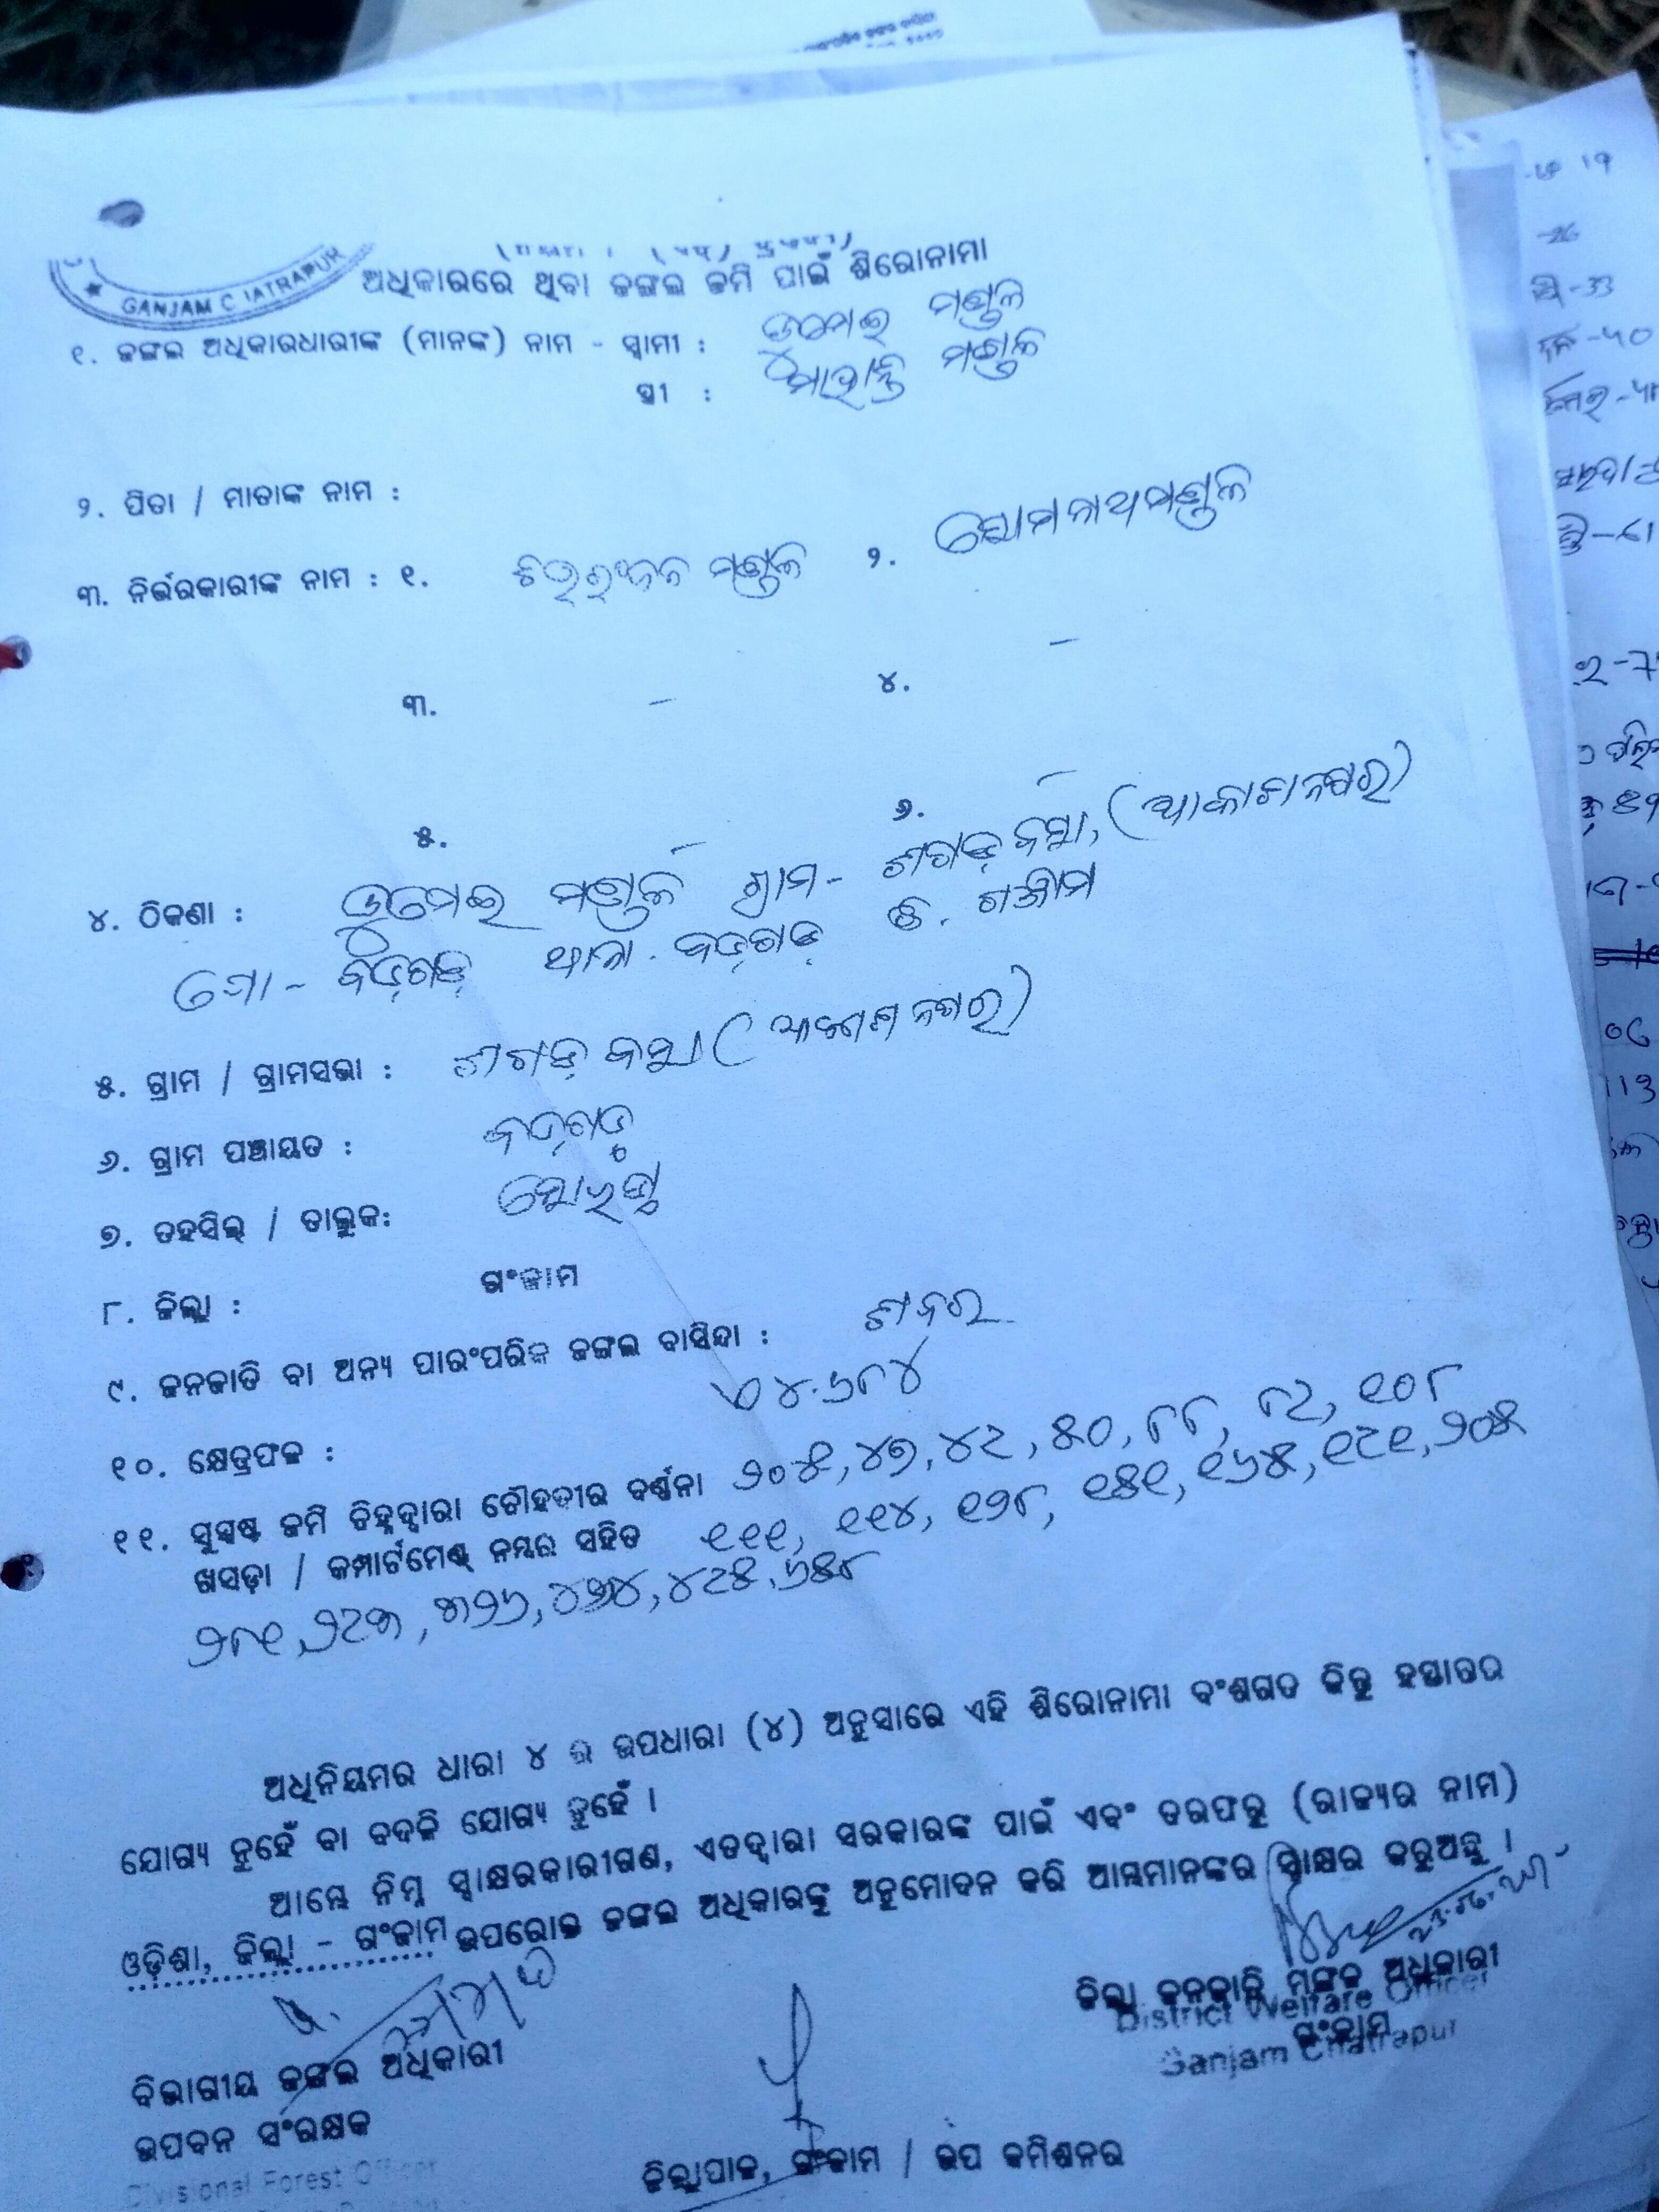 GANJAM
ଅଧିକାରରେ ଥିବା ଜଙ୍ଗଲ ଜମି ପାଇଁ ଶିରୋନାମା
୧. ଜଙ୍ଗଲ ଅଧିକାରଧାରୀଙ୍କ (ମାନଙ୍କ) ନାମ - ସ୍ୱାମୀ : ମଣ୍ଡଳ
ସ୍ତ୍ରୀ : ମଣ୍ଡଳ
୨. ପିତା / ମାତାଙ୍କ ନାମ :
୩. ନିର୍ଭରକାରୀଙ୍କ ନାମ : ୧. ମଣ୍ଡଳ ୨. ସୋମନାଥ ମଣ୍ଡଳ
୩. - ୪. -
୫. - ୬. -
୪. ଠିକଣା : ମଣ୍ଡଳ ଗ୍ରାମ - ଶଗଡ଼ ବସା, (ଆକାଶ ନଗର)
ପୋ - ବଡ଼ଗଡ଼ ଥାନା - ବଡ଼ଗଡ଼ ଜି. ଗଞ୍ଜାମ
୫. ଗ୍ରାମ / ଗ୍ରାମସଭା : ଶଗଡ଼ ବସା (ଆକାଶ ନଗର)
୬. ଗ୍ରାମ ପଞ୍ଚାୟତ : ବଡ଼ଗଡ଼
୭. ତହସିଲ୍ / ତାଲୁକ: ସୋରଡ଼ା
୮. ଜିଲ୍ଲା : ଗଂଜାମ
୯. ଜନଜାତି ବା ଅନ୍ୟ ପାରଂପରିକ ଜଙ୍ଗଲ ବାସିନ୍ଦା : ଶବର
୧୦. କ୍ଷେତ୍ରଫଳ : ୪.୬୮୪
୧୧. ସୁସ୍ପଷ୍ଟ ଜମି ଚିହ୍ନଦ୍ୱାରା ଚୌହଦୀର ବର୍ଣ୍ଣନା ୪୭, ୪୯, ୫୦, ୮୮, ୮୯, ୧୦୮
ଖସଡ଼ା / କମ୍ପାର୍ଟମେଣ୍ଟ୍ ନମ୍ବର ସହିତ ୧୧୧, ୧୧୪, ୧୨୮, ୧୫୧, ୧୬୫, ୧୯୧, ୨୦୫
୨୮୧, ୨୯୩, ୩୨୬, ୪୨୪, ୪୯୫, ୬୫୮
ଅଧିନିୟମର ଧାରା ୪ ର ଉପଧାରା (୪) ଅନୁସାରେ ଏହି ଶିରୋନାମା ବଂଶଗତ କିନ୍ତୁ ହସ୍ତାନ୍ତର
ଯୋଗ୍ୟ ନୁହେଁ ବା ବଦଳି ଯୋଗ୍ୟ ନୁହେଁ ।
ଆମ୍ଭେ ନିମ୍ନ ସ୍ୱାକ୍ଷରକାରୀଗଣ, ଏତଦ୍ୱାରା ସରକାରଙ୍କ ପାଇଁ ଏବଂ ତରଫରୁ (ରାଜ୍ୟର ନାମ)
ଓଡ଼ିଶା, ଜିଲ୍ଲା - ଗଂଜାମ ଉପରୋକ୍ତ ଜଙ୍ଗଲ ଅଧିକାରଙ୍କୁ ଅନୁମୋଦନ କରି ଆମ୍ଭମାନଙ୍କର ସ୍ୱାକ୍ଷର କରୁଅଛୁ ।
ଜିଲ୍ଲା ଜନଜାତି ମଙ୍ଗଳ ଅଧିକାରୀ
District Welfare Officer
ଗଂଜାମ
Ganjam Chatrapur
ବିଭାଗୀୟ ଜଙ୍ଗଲ ଅଧିକାରୀ
ଉପବନ ସଂରକ୍ଷକ
Divisional Forest Officer
ଜିଲ୍ଲାପାଳ, ଗଂଜାମ / ଉପ କମିଶନର